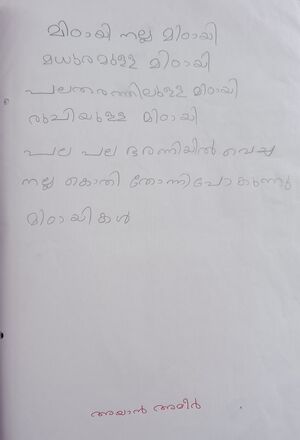 മിഠായി നല്ല മിഠായി
മധുരമുള്ള മിഠായി
പലതരത്തിലുള്ള മിഠായി
രുചിയുള്ള മിഠായി
പല പല ഭരണിയിൽ വെച്ച
നല്ല കൊതി തോന്നിപോകുന്നു
മിഠായികൾ
അയാൻ അമീർ